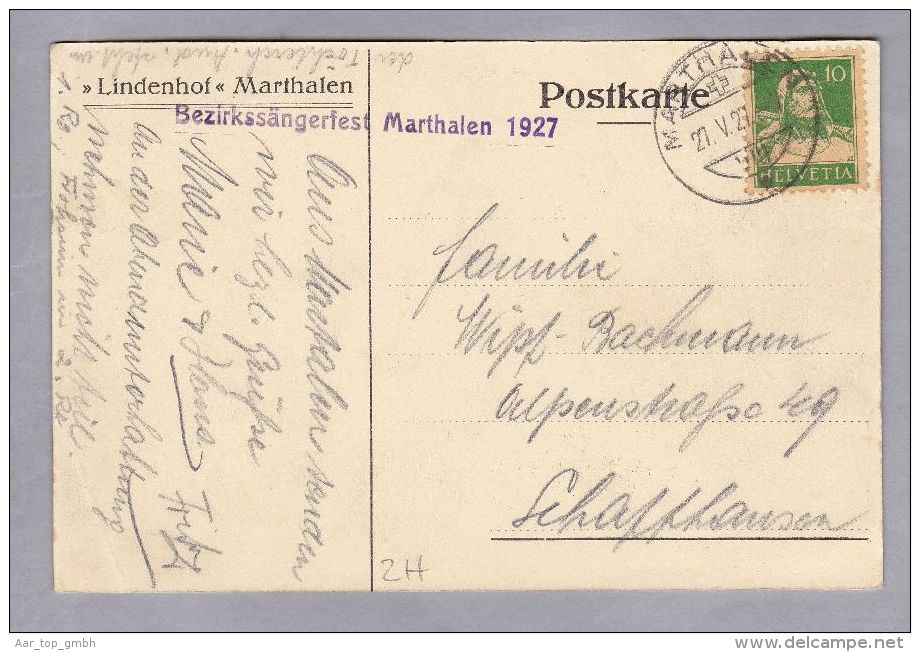 » Lindenhof « Marthalen
Postkarte
Bezirkssängerfest Marthalen 1927
MARTHALEN
10
HELVETIA
Aus Marthalen senden
wir herzl. Grüsse
Marie & Hans. Fritz
An der Abendunterhaltung
nehmen nicht teil.
Familie
Wipf-Bachmann
Alpenstrasse 49
Schaffhausen
ZH
Aar_top_gmbh
www.delcampe.net